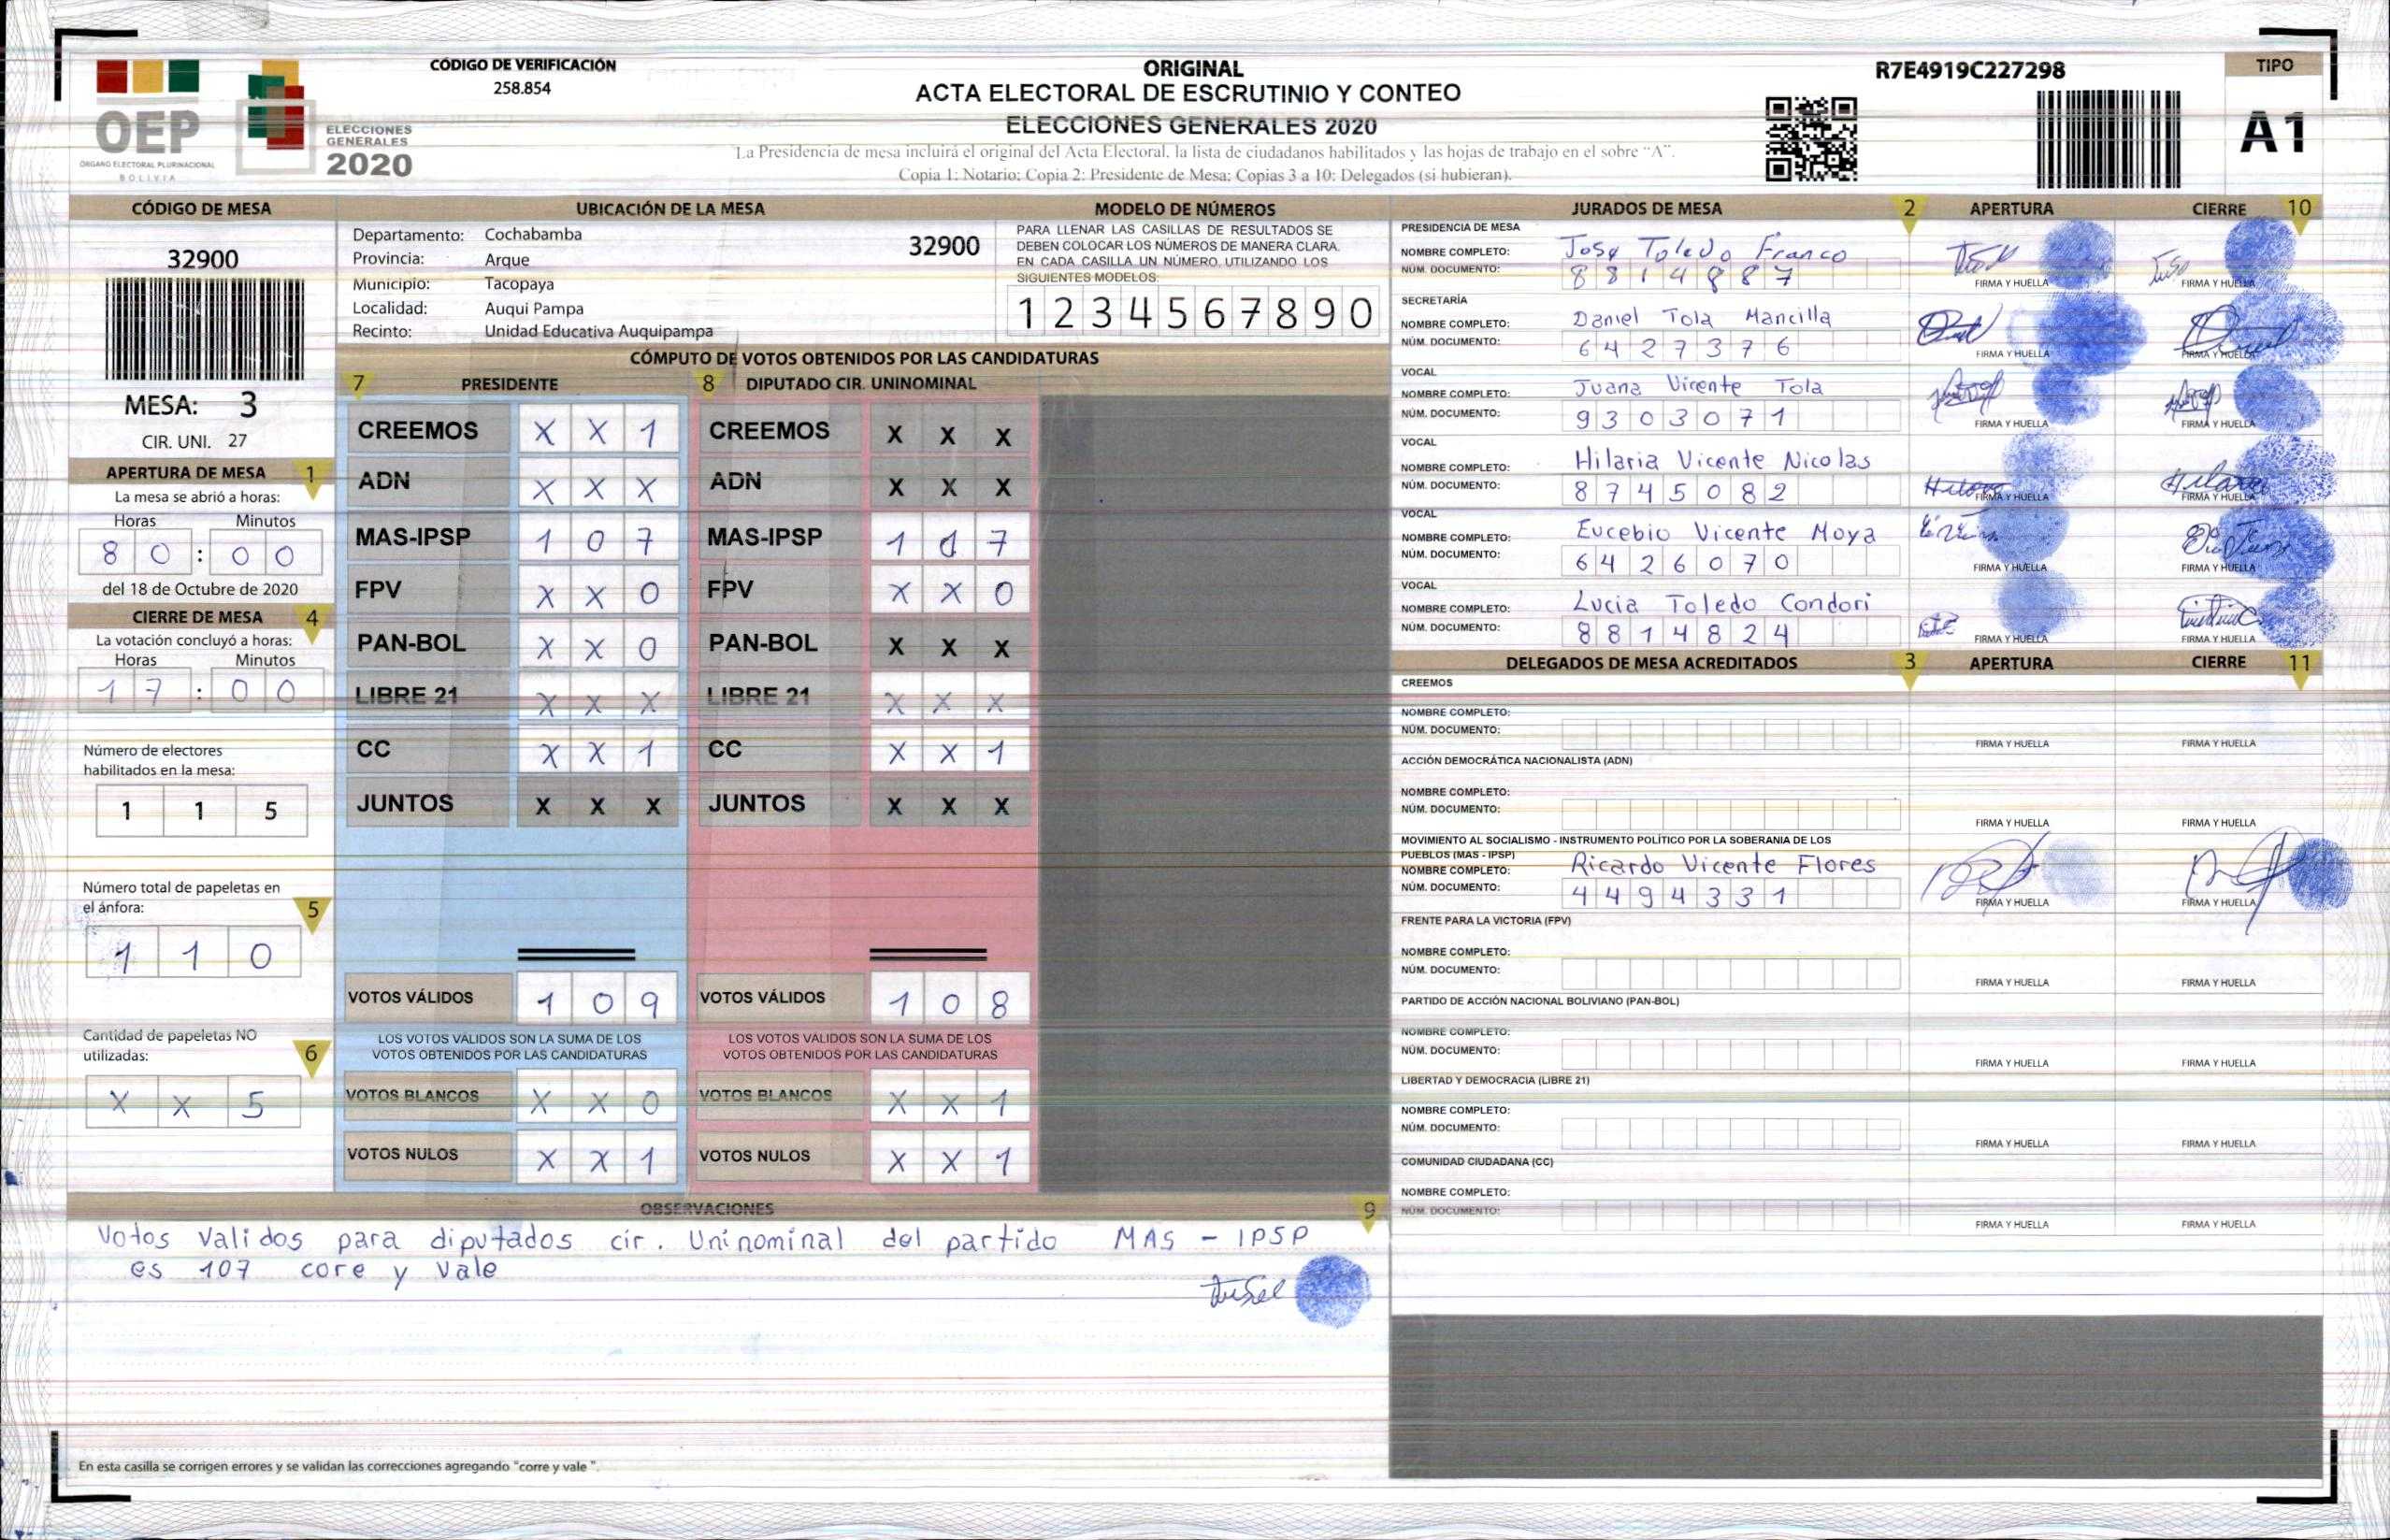 CÓDIGO DE VERIFICACIÓN
258.854
OEP
ÓRGANO ELECTORAL PLURINACIONAL
BOLIVIA
ELECCIONES
GENERALES
2020
ORIGINAL
ACTA ELECTORAL DE ESCRUTINIO Y CONTEO
ELECCIONES GENERALES 2020
La Presidencia de mesa incluirá el original del Acta Electoral, la lista de ciudadanos habilitados y las hojas de trabajo en el sobre "A".
Copia 1: Notario; Copia 2: Presidente de Mesa; Copias 3 a 10: Delegados (si hubieran).
R7E4919C227298
TIPO
A1
CÓDIGO DE MESA
32900
MESA: 3
CIR. UNI. 27
APERTURA DE MESA 1
La mesa se abrió a horas:
Horas Minutos
8 0 : 0 0
del 18 de Octubre de 2020
CIERRE DE MESA 4
La votación concluyó a horas:
Horas Minutos
1 7 : 0 0
Número de electores
habilitados en la mesa:
1 1 5
Número total de papeletas en
el ánfora: 5
1 1 0
Cantidad de papeletas NO
utilizadas: 6
X X 5
UBICACIÓN DE LA MESA
Departamento: Cochabamba
32900
Provincia: Arque
Municipio: Tacopaya
Localidad: Auqui Pampa
Recinto: Unidad Educativa Auquipampa
MODELO DE NÚMEROS
PARA LLENAR LAS CASILLAS DE RESULTADOS SE
DEBEN COLOCAR LOS NÚMEROS DE MANERA CLARA.
EN CADA CASILLA UN NÚMERO, UTILIZANDO LOS
SIGUIENTES MODELOS:
1 2 3 4 5 6 7 8 9 0
CÓMPUTO DE VOTOS OBTENIDOS POR LAS CANDIDATURAS
7 PRESIDENTE 8 DIPUTADO CIR. UNINOMINAL
CREEMOS X X 1 CREEMOS X X X
ADN X X X ADN X X X
MAS-IPSP 1 0 7 MAS-IPSP 1 7
FPV X X 0 FPV X X 0
PAN-BOL X X 0 PAN-BOL X X X
LIBRE 21 X X X LIBRE 21 X X X
CC X X 1 CC X X 1
JUNTOS X X X JUNTOS X X X
VOTOS VÁLIDOS 1 0 9 VOTOS VÁLIDOS 1 0 8
LOS VOTOS VÁLIDOS SON LA SUMA DE LOS
VOTOS OBTENIDOS POR LAS CANDIDATURAS
LOS VOTOS VÁLIDOS SON LA SUMA DE LOS
VOTOS OBTENIDOS POR LAS CANDIDATURAS
VOTOS BLANCOS X X 0 VOTOS BLANCOS X X 1
VOTOS NULOS X X 1 VOTOS NULOS X X 1
OBSERVACIONES 9
Votos Validos para diputados cir. Uninominal del partido MAS - IPSP
es 107 core y vale
En esta casilla se corrigen errores y se validan las correcciones agregando "corre y vale ".
JURADOS DE MESA 2 APERTURA CIERRE 10
PRESIDENCIA DE MESA
NOMBRE COMPLETO: Jose Toledo Franco
NÚM. DOCUMENTO: 8 8 1 4 8 8 7
FIRMA Y HUELLA FIRMA Y HUELLA
SECRETARÍA
NOMBRE COMPLETO: Daniel Tola Mancilla
NÚM. DOCUMENTO: 6 4 2 7 3 7 6
FIRMA Y HUELLA FIRMA Y HUELLA
VOCAL
NOMBRE COMPLETO: Juana Vicente Tola
NÚM. DOCUMENTO: 9 3 0 3 0 7 1
FIRMA Y HUELLA FIRMA Y HUELLA
VOCAL
NOMBRE COMPLETO: Hilaria Vicente Nicolas
NÚM. DOCUMENTO: 8 7 4 5 0 8 2
FIRMA Y HUELLA FIRMA Y HUELLA
VOCAL
NOMBRE COMPLETO: Eucebio Vicente Moya
NÚM. DOCUMENTO: 6 4 2 6 0 7 0
FIRMA Y HUELLA FIRMA Y HUELLA
VOCAL
NOMBRE COMPLETO: Lucia Toledo Condori
NÚM. DOCUMENTO: 8 8 1 4 8 2 4
FIRMA Y HUELLA FIRMA Y HUELLA
DELEGADOS DE MESA ACREDITADOS 3 APERTURA CIERRE 11
CREEMOS
NOMBRE COMPLETO:
NÚM. DOCUMENTO:
FIRMA Y HUELLA FIRMA Y HUELLA
ACCIÓN DEMOCRÁTICA NACIONALISTA (ADN)
NOMBRE COMPLETO:
NÚM. DOCUMENTO:
FIRMA Y HUELLA FIRMA Y HUELLA
MOVIMIENTO AL SOCIALISMO - INSTRUMENTO POLÍTICO POR LA SOBERANIA DE LOS
PUEBLOS (MAS - IPSP)
NOMBRE COMPLETO: Ricardo Vicente Flores
NÚM. DOCUMENTO: 4 4 9 4 3 3 1
FIRMA Y HUELLA FIRMA Y HUELLA
FRENTE PARA LA VICTORIA (FPV)
NOMBRE COMPLETO:
NÚM. DOCUMENTO:
FIRMA Y HUELLA FIRMA Y HUELLA
PARTIDO DE ACCIÓN NACIONAL BOLIVIANO (PAN-BOL)
NOMBRE COMPLETO:
NÚM. DOCUMENTO:
FIRMA Y HUELLA FIRMA Y HUELLA
LIBERTAD Y DEMOCRACIA (LIBRE 21)
NOMBRE COMPLETO:
NÚM. DOCUMENTO:
FIRMA Y HUELLA FIRMA Y HUELLA
COMUNIDAD CIUDADANA (CC)
NOMBRE COMPLETO:
NÚM. DOCUMENTO:
FIRMA Y HUELLA FIRMA Y HUELLA